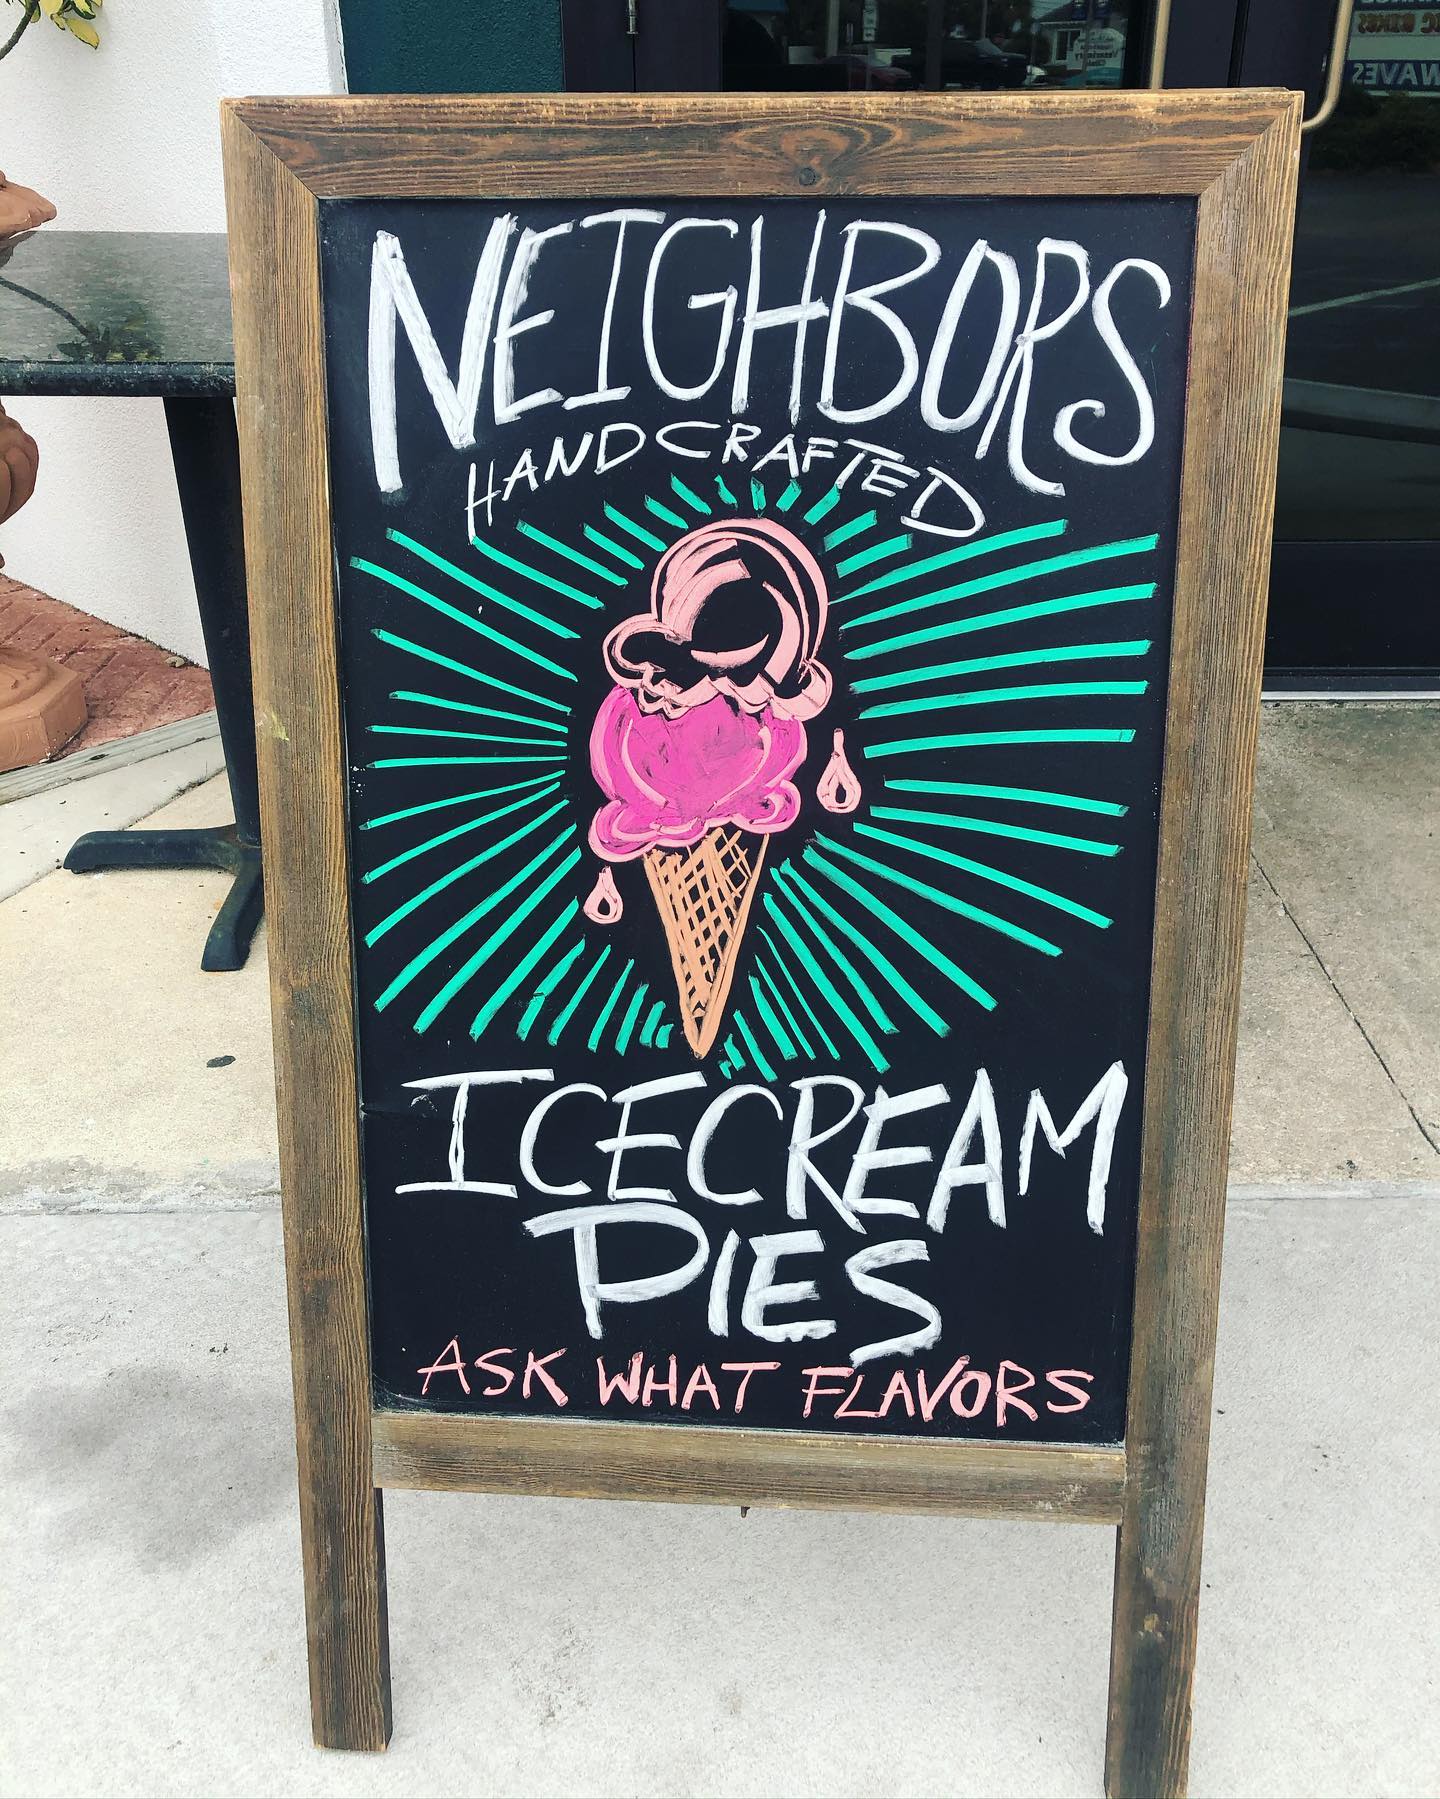 NEIGHBORS
HANDCRAFTED
ICECREAM
PIES
ASK WHAT FLAVORS
WAVES